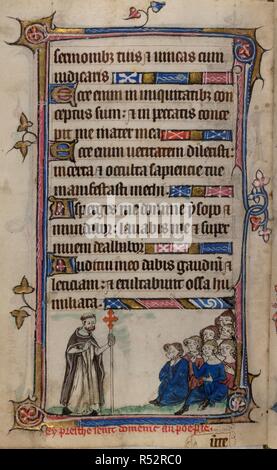 sermonibus tuis & vincas cum
iudicaris
Ecce enim in iniquitatib' con
ceptus sum: & in peccatis conce
pit me mater mea
Ecce enim veritatem dilexisti
incerta & occulta sapiencie tue
manifestasti michi.
Asperges me domine ysopo &
mundabor: lavabis me & super
nivem dealbabor.
Auditui meo dabis gaudium &
leticiam: & exultabunt ossa hu
miliata.
cy preiche seint domenic au poeple
alamy
www.alamy.com
Image ID: R52RC0